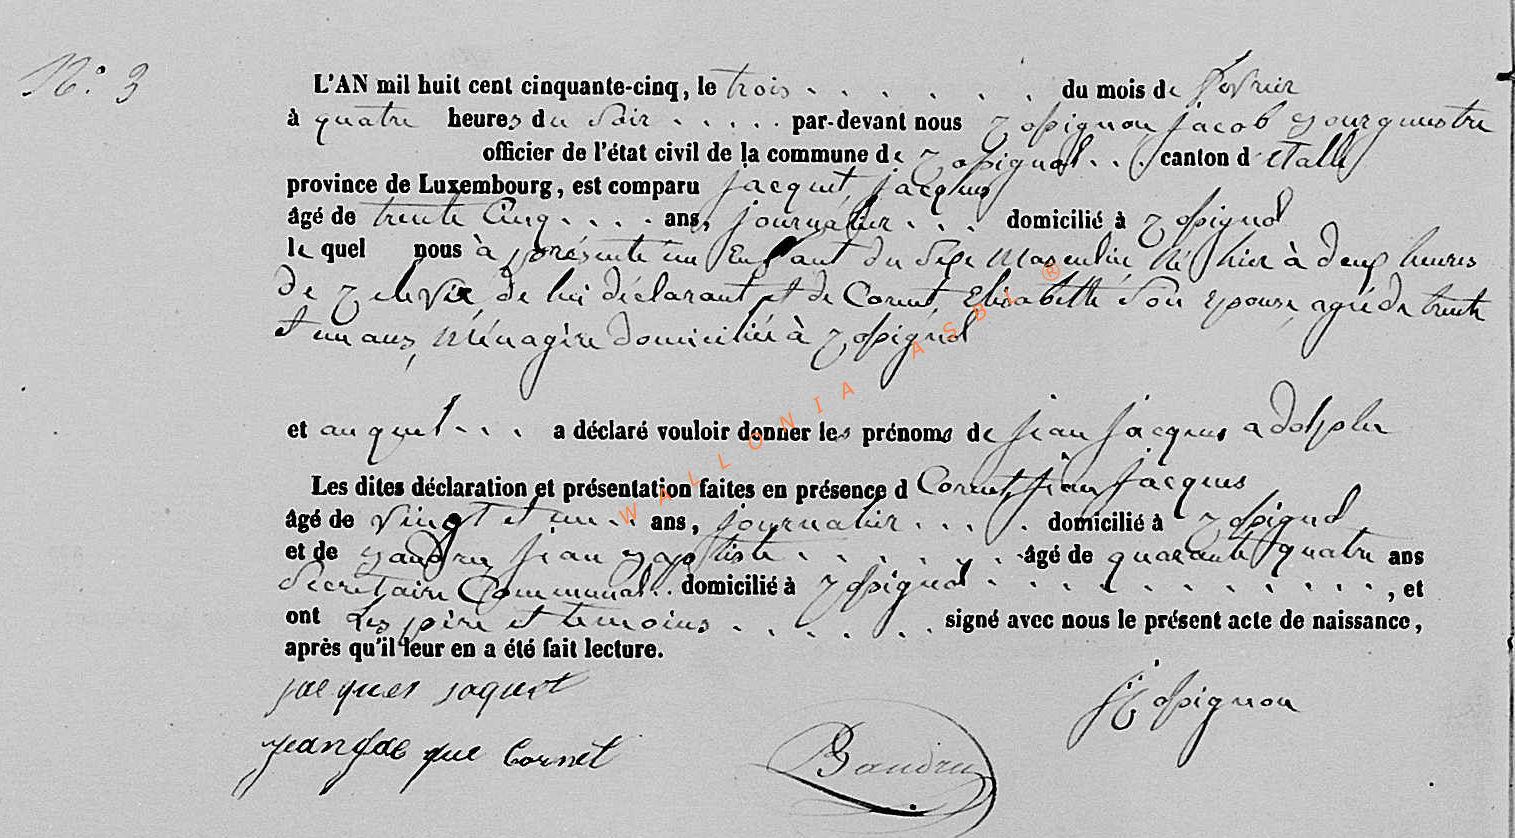 N.º 3
L'AN mil huit cent cinquante-cinq, le trois . . . . . . du mois de février
à quatre heures du Soir . . . . . par-devant nous Zospignon jacob Bourguestre
officier de l'état civil de la commune de . . . canton d'Etalle
province de Luxembourg, est comparu jacquet jacques
âgé de trente Cinq . . . . ans, journalier . . . domicilié à
le quel nous à présenté un Enfant du Sexe Masculin, Né hier à deux heures
de relevée, de lui déclarant et de Cornet, Elisabeth son Epouse, agée de trente
et un ans, Ménagère domiciliée à
et auquel . . . a déclaré vouloir donner les prénoms de jean jacques adolphe
Les dites déclaration et présentation faites en présence d Cornet, jean jacques
âgé de vingt et un . . ans, journalier . . . . domicilié à
et de Baudru jean Baptiste . . . . . . . âgé de quarante quatre ans
Secretaire Communal . . domicilié à . . . . . . . . . . . , et
ont Les père et temoins . . . . . . signé avec nous le présent acte de naissance,
après qu'il leur en a été fait lecture.
jacques jaquet
jean jacque Cornet
Baudru
WALLONIA ASBL ®